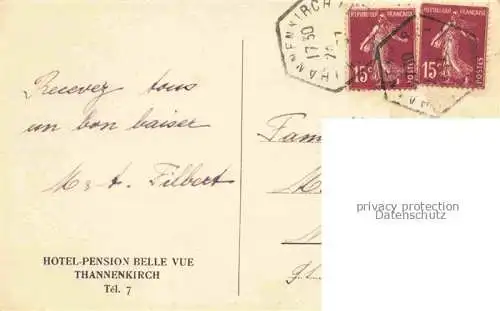 Recevez tous
un bon baiser
M. & A. Filbert
HOTEL-PENSION BELLE VUE
THANNENKIRCH
Tél. 7
THANNENKIRCH
17 30
REPUBLIQUE FRANÇAISE
15c
POSTES
REPUBLIQUE FRANÇAISE
15c
POSTES
Fam
M
privacy protection
Datenschutz